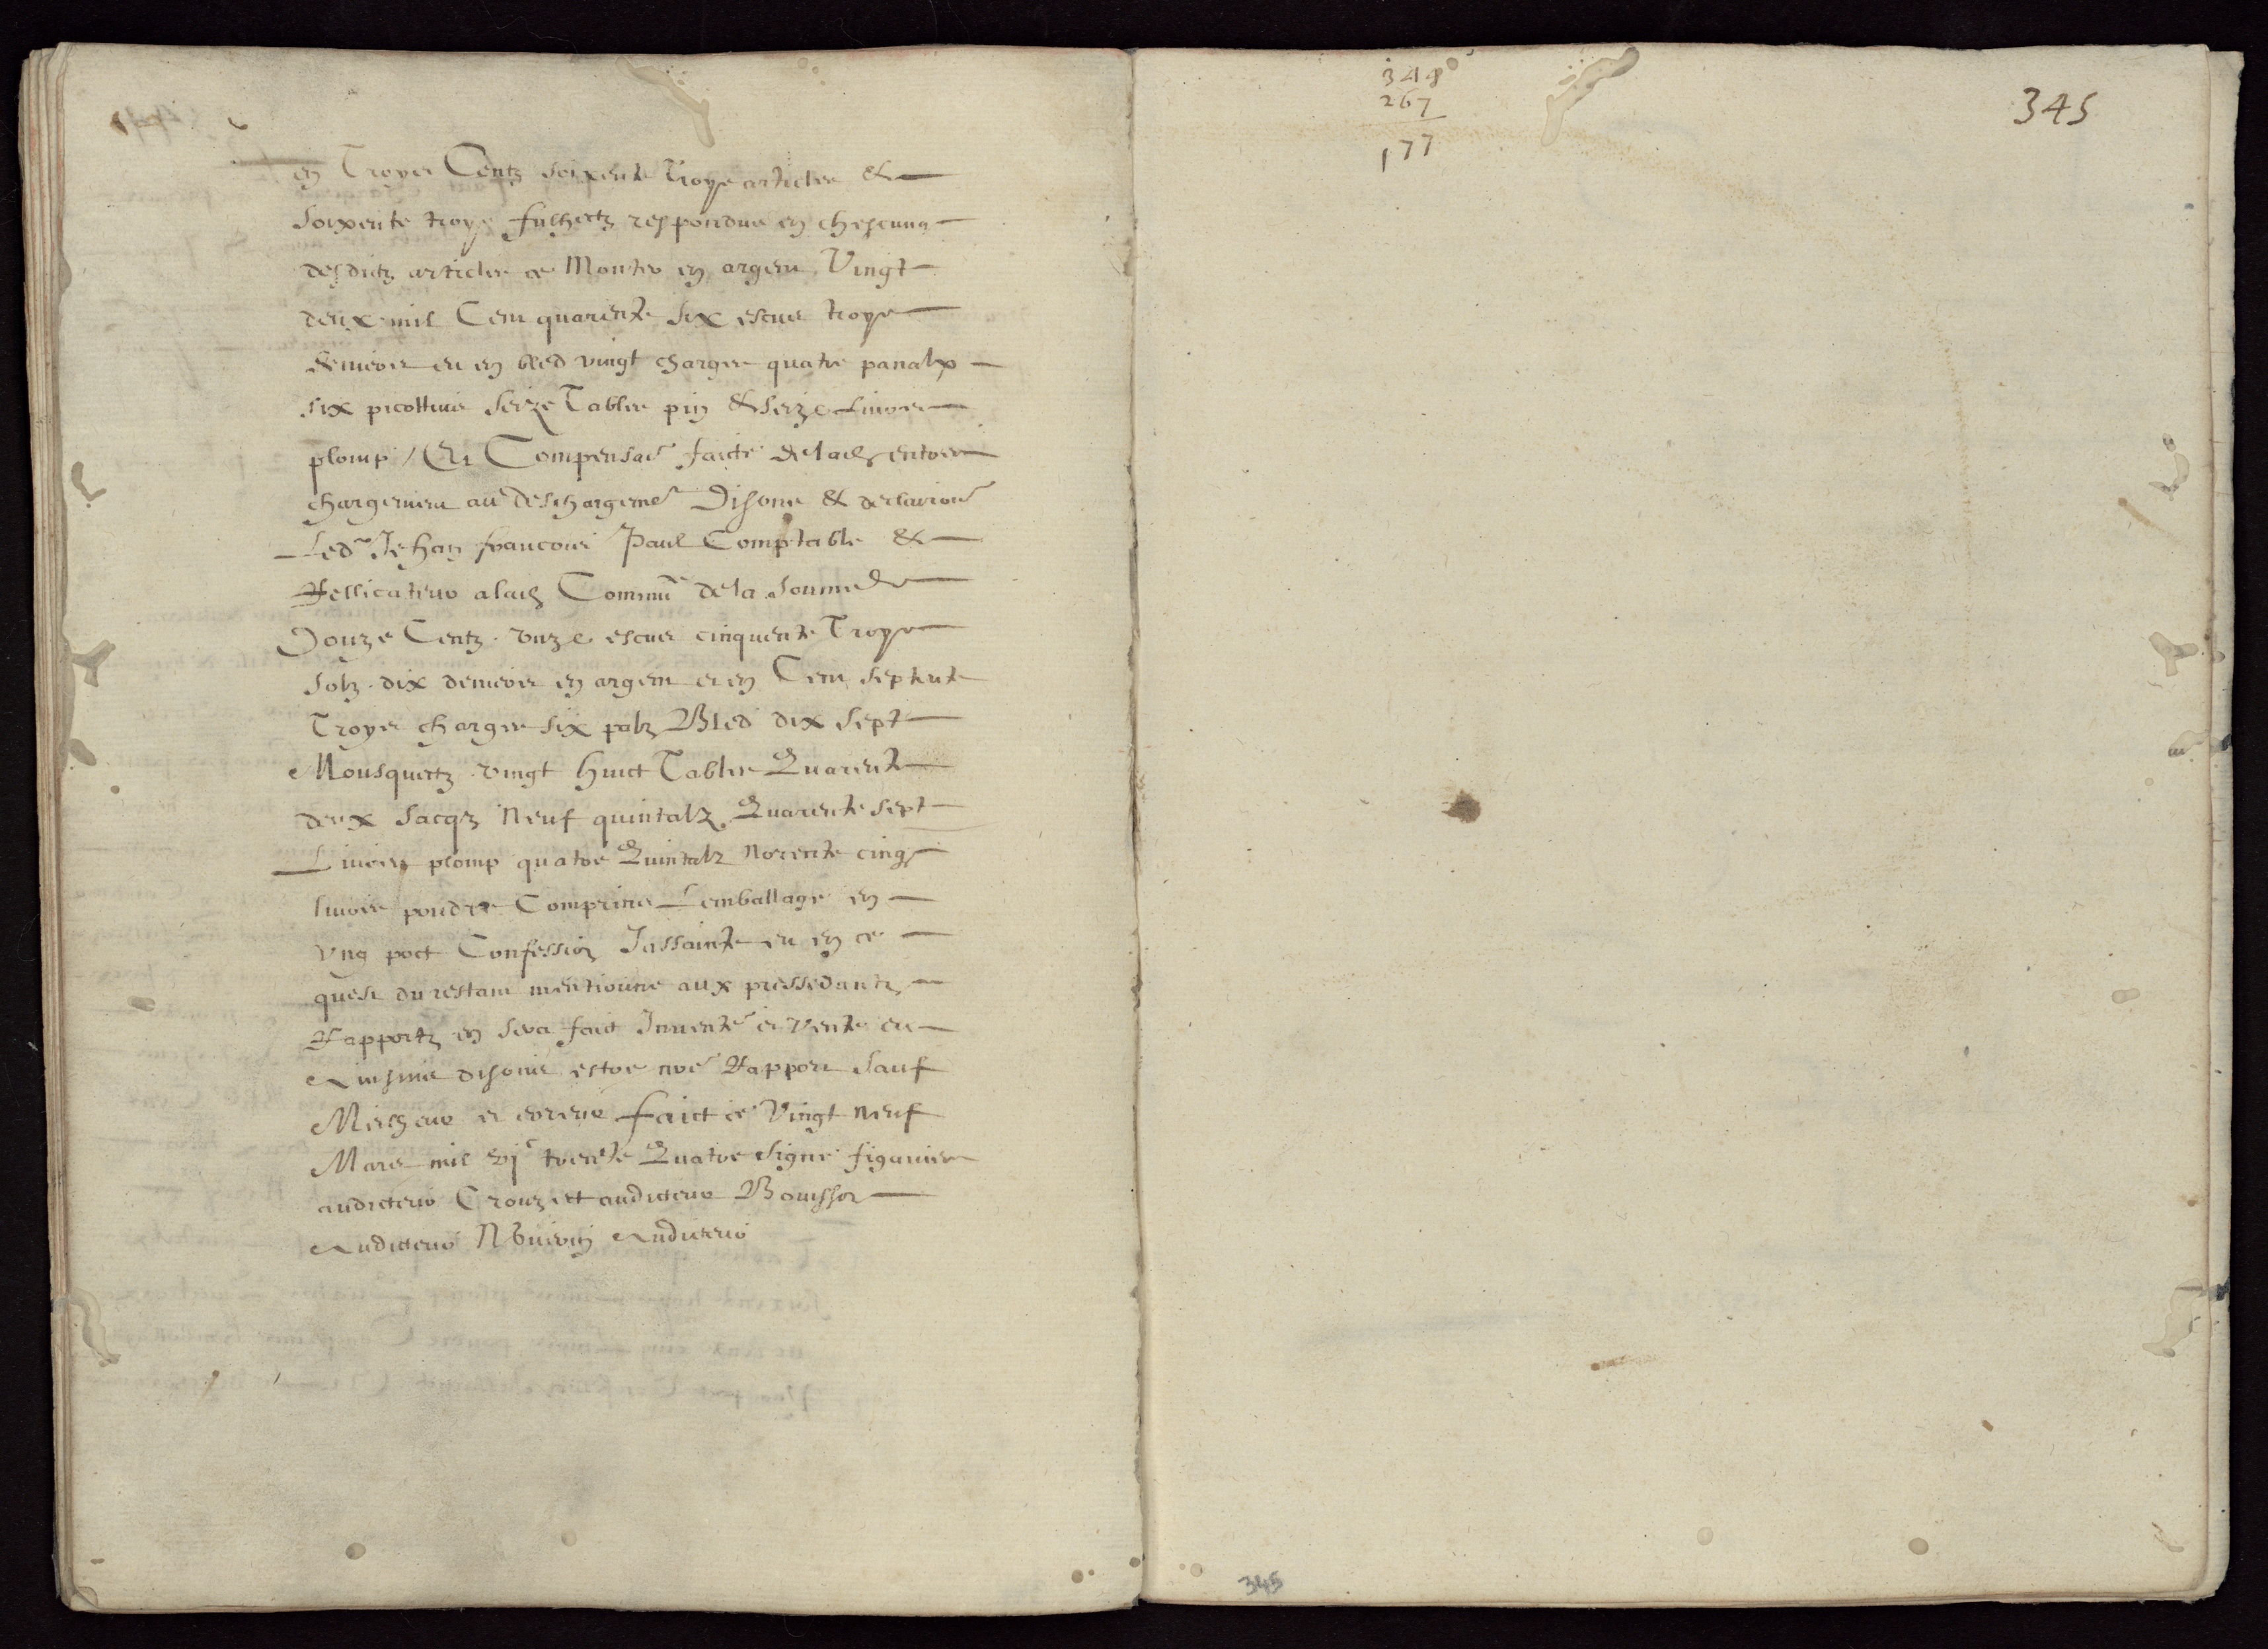 en Troyes Centz soixente Troys articles &
soixente troys fulhectz respondus en chescung
desdictz articles ce Monter en argent Vingt
deux mil Cent quarente six escus troys
deniers et en bled vingt charges quatre panalx
six picottins seize Tables pin & seize Livres
plomp / Et Compensaon faicte de lad entree
chargement au deschargemet Disons & declairons
Led Jehan francois Paul Comptable &
Rellicateur a lad Commte de la somme de
Douze Centz unze escus cinquente Troys
solz dix deniers en argent et en Cent septente
Troyes charges six palz Bled dix sept
Mousquectz vingt huict Tables Quarente
deux sacqz Neuf quintalz Quarente sept
Livres plomp quatre Quintalz Norente cinq
livres poudre Comprins Lemballage en
ung poct Confession Jassainte et en ce
quest du restant mentionne aux pressedantz
Rapportz en sera faict Invente et vente et
Ainsins disons estre nre Rapport sauf
Meshene et erreur faict ce Vingt neuf
Mars mil vjc trente Quatre Signe figanier
audicteur Crouzet audicteur Bouisson
Audicteur Nouvin Audicteur
348
267
177
345
345